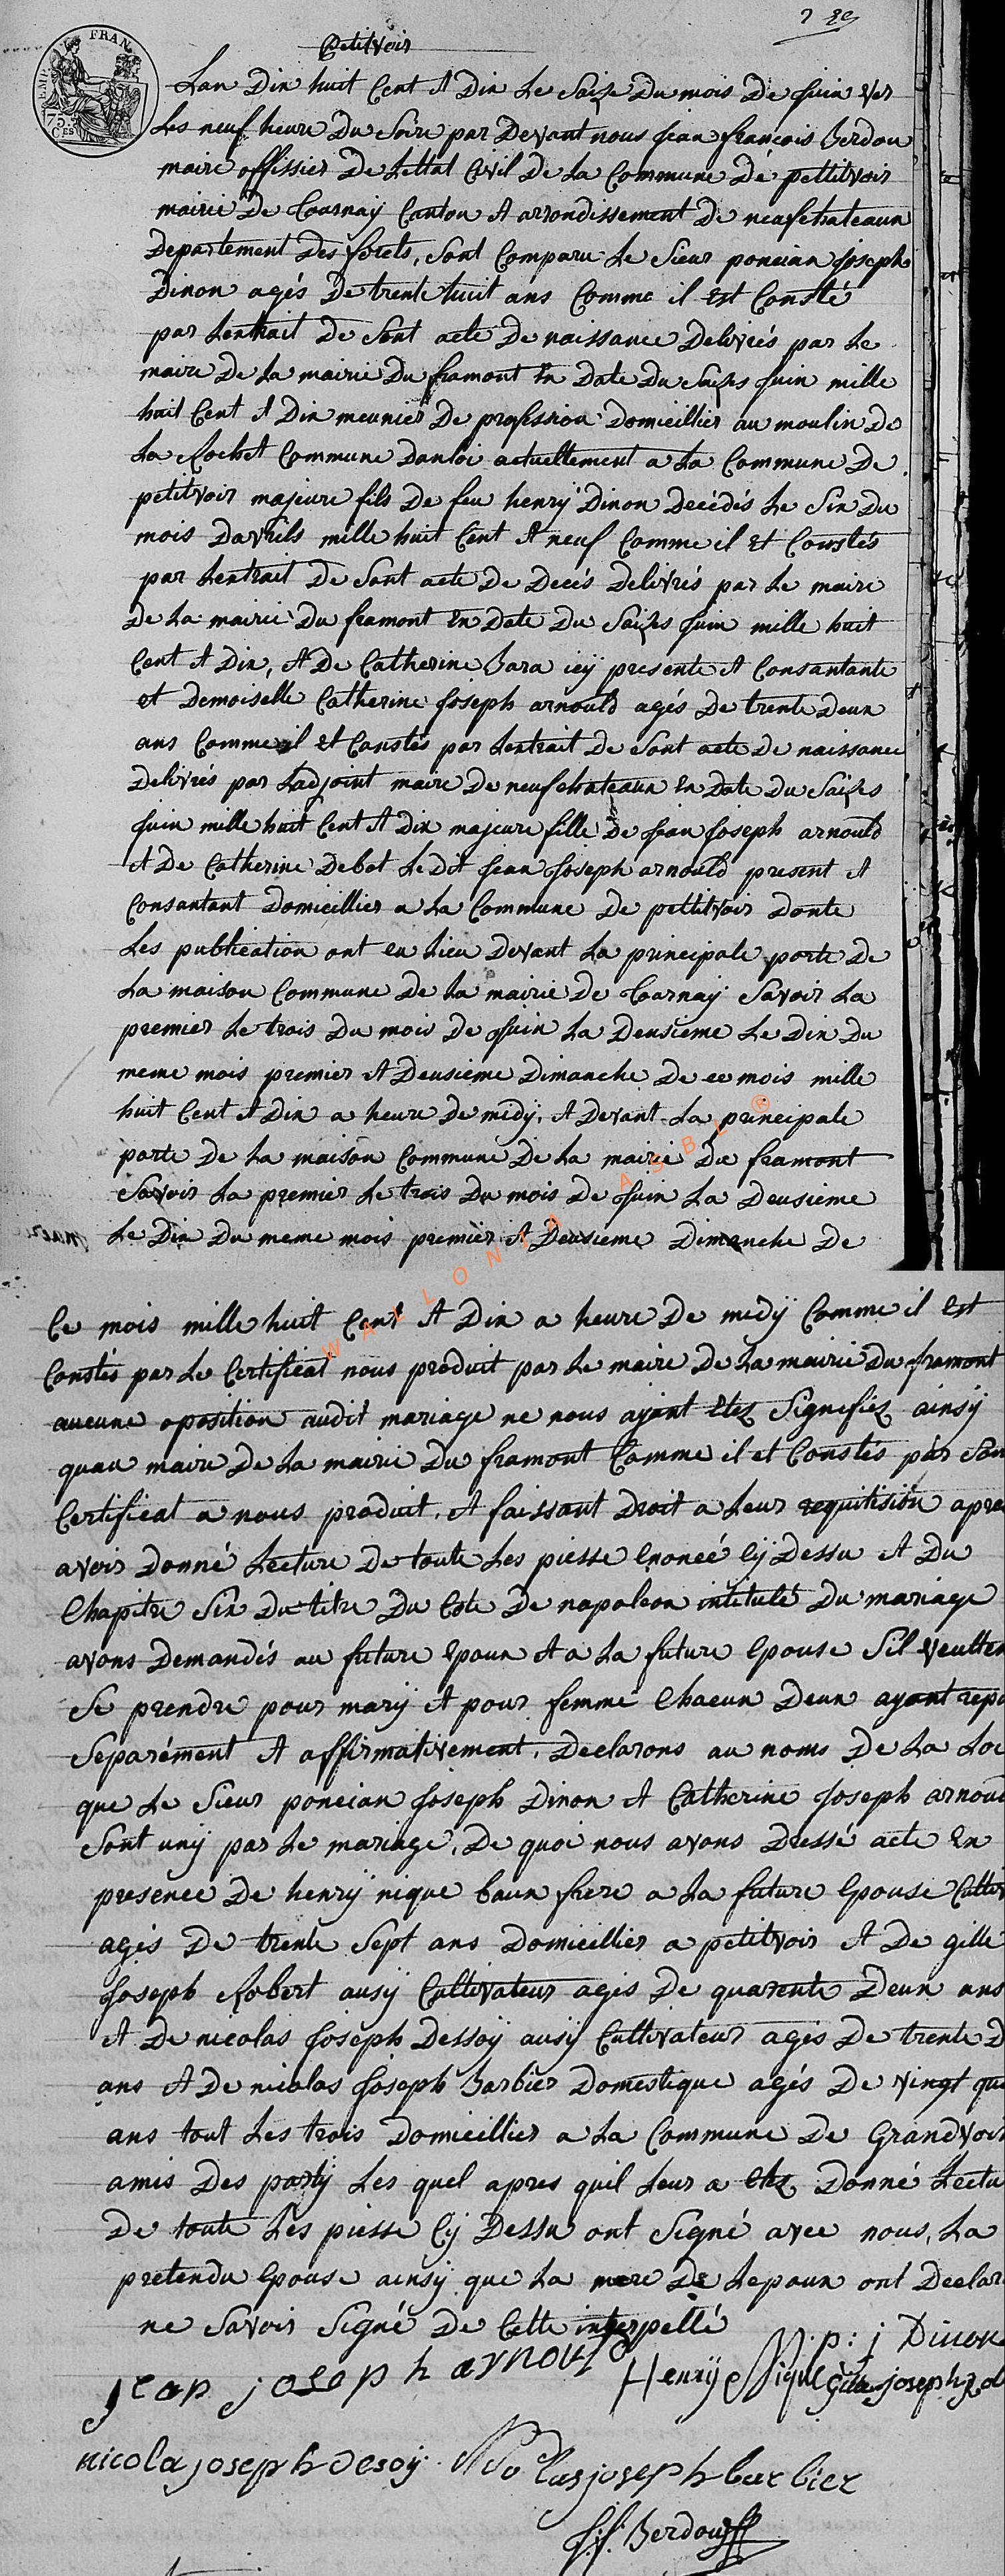 Petitvoir
Lan Dix huit Cent et Dix Le Saize Du mois De juin ver
Les neuf heure Du Soire par Devant nous jean françois Berdou
maire offissier De Lettat Civil De La Commune De pettitvoir
mairie De Tournaÿ Canton et arrondissement De neufchateaux
Departement Des forets, sont Comparu Le Sieur poncian joseph
Dinon agés De trente huit ans Comme il Est Consté
par Lextrait De Sont acte De naissance Delivrés par Le
maire De La mairie Du framont En Date Du Saizes juin mille
huit Cent et Dix meunier De profession Domicillier au moulin De
La Rochet Commune Danloi actuellement a La Commune De
petitvoir majeure fils De feu henrÿ Dinon Decédés Le Six Du
mois Davrils mille huit Cent et neuf Comme il Et Constés
par Lextrait De Sont acte De Decés Delivrés par Le maire
De La mairie Du framont En Date Du Saizes juin mille huit
Cent et Dix, et De Catherine Bara icÿ presente et Consantante
et Demoiselle Catherine joseph arnould agés De trente Deux
ans Comme il Et Constés par Lextrait De Sont acte De naissance
Delivrés par Ladjoint maire De neufchateaux En Date Du Saizes
juin mille huit Cent et Dix majeure fille De jean joseph arnould
et De Catherine Debot Le Dit jean joseph arnould present et
Consantant Domicillier a La Commune De pettitvoir Donte
Les publication ont eu Lieu Devant La principale porte De
La maison Commune De La mairie De Tournaÿ Savoir La
premier Le trois Du mois De juin La Deusieme Le Dix Du
meme mois premier et Deusieme Dimanche De ce mois mille
huit Cent et Dix a heure De midÿ, et Devant La principale
porte De La maison Commune De La mairie Du framont
Savoir La premier Le trois Du mois De juin La Deusieme
Le Dix Du meme mois premier et Deusieme Dimanche De
Ce mois mille huit Cent et Dix a heure De midÿ Comme il Est
Constés par Le Certificat nous produit par Le maire De La mairie Du framont
aucune oposition audit mariage ne nous ayant Etez Signifiez ainsÿ
quau maire De La mairie Du framont Comme il et Constés par Son
Certificat a nous produit, et faissant Droit a Leur requitision apre
avoir Donné Lecture De toute Les piesse Enoncé Cÿ Dessu et Du
Chapitre Six Du titre Du Code De napoleon intitulé Du mariage
avons Demandés au future Epoux et a La future Epouse Sil veulten
Se prendre pour marÿ et pour femme Chacun Deux ayant repo
Separément et affirmativement, Declarons au noms De La Loi
que Le Sieur poncian joseph Dinon et Catherine joseph arnoul
Sont unÿ par Le mariage, De quoi nous avons Dressé acte En
presence De henrÿ nique baux frere a La future Epouse Cultiv
agés De trente Sept ans Domicillier a petitvoir et De gille
joseph Robert ausÿ Cultivateur agés De quarente Deux ans
et De nicolas joseph Dessoÿ ausÿ Cultivateur agés De trente D
ans et De nicolas joseph Barbier Domestique agés De vingt qu
ans tout Les trois Domicillier a La Commune De Grandvoir
amis Des partÿ Les quel apres quil Leur a Etez Donné Lectu
De toute Les piesse Cÿ Dessu ont Signé avec nous, La
pretendu Epouse ainsÿ que La mere De Lepoux ont Declar
ne Savoir Signé De Cette interpellé
p: j Dinon
jean joseph arnould Henrÿ Nique Gille joseph Ro
nicola joseph desoÿ Nicolas joseph barbier
j.f. Berdou
WALLONIA ASBL ®